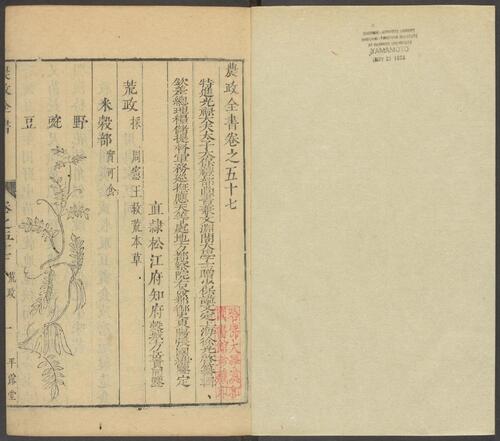 農政全書卷之五十七
特進光祿大夫太子太保禮部尚書兼文淵閣大學士贈少保諡文定上海徐光啓纂輯
欽差總理糧儲提督軍務巡撫應天等處地方都察院右僉都御史東陽張國維鑒定
直隸松江府知府穀城方岳貢同鑒
荒政 採周憲王救荒本草
米穀部 實可食
野豌豆
農政全書
卷之五十七
荒政
一
平露堂
YAMAMOTO